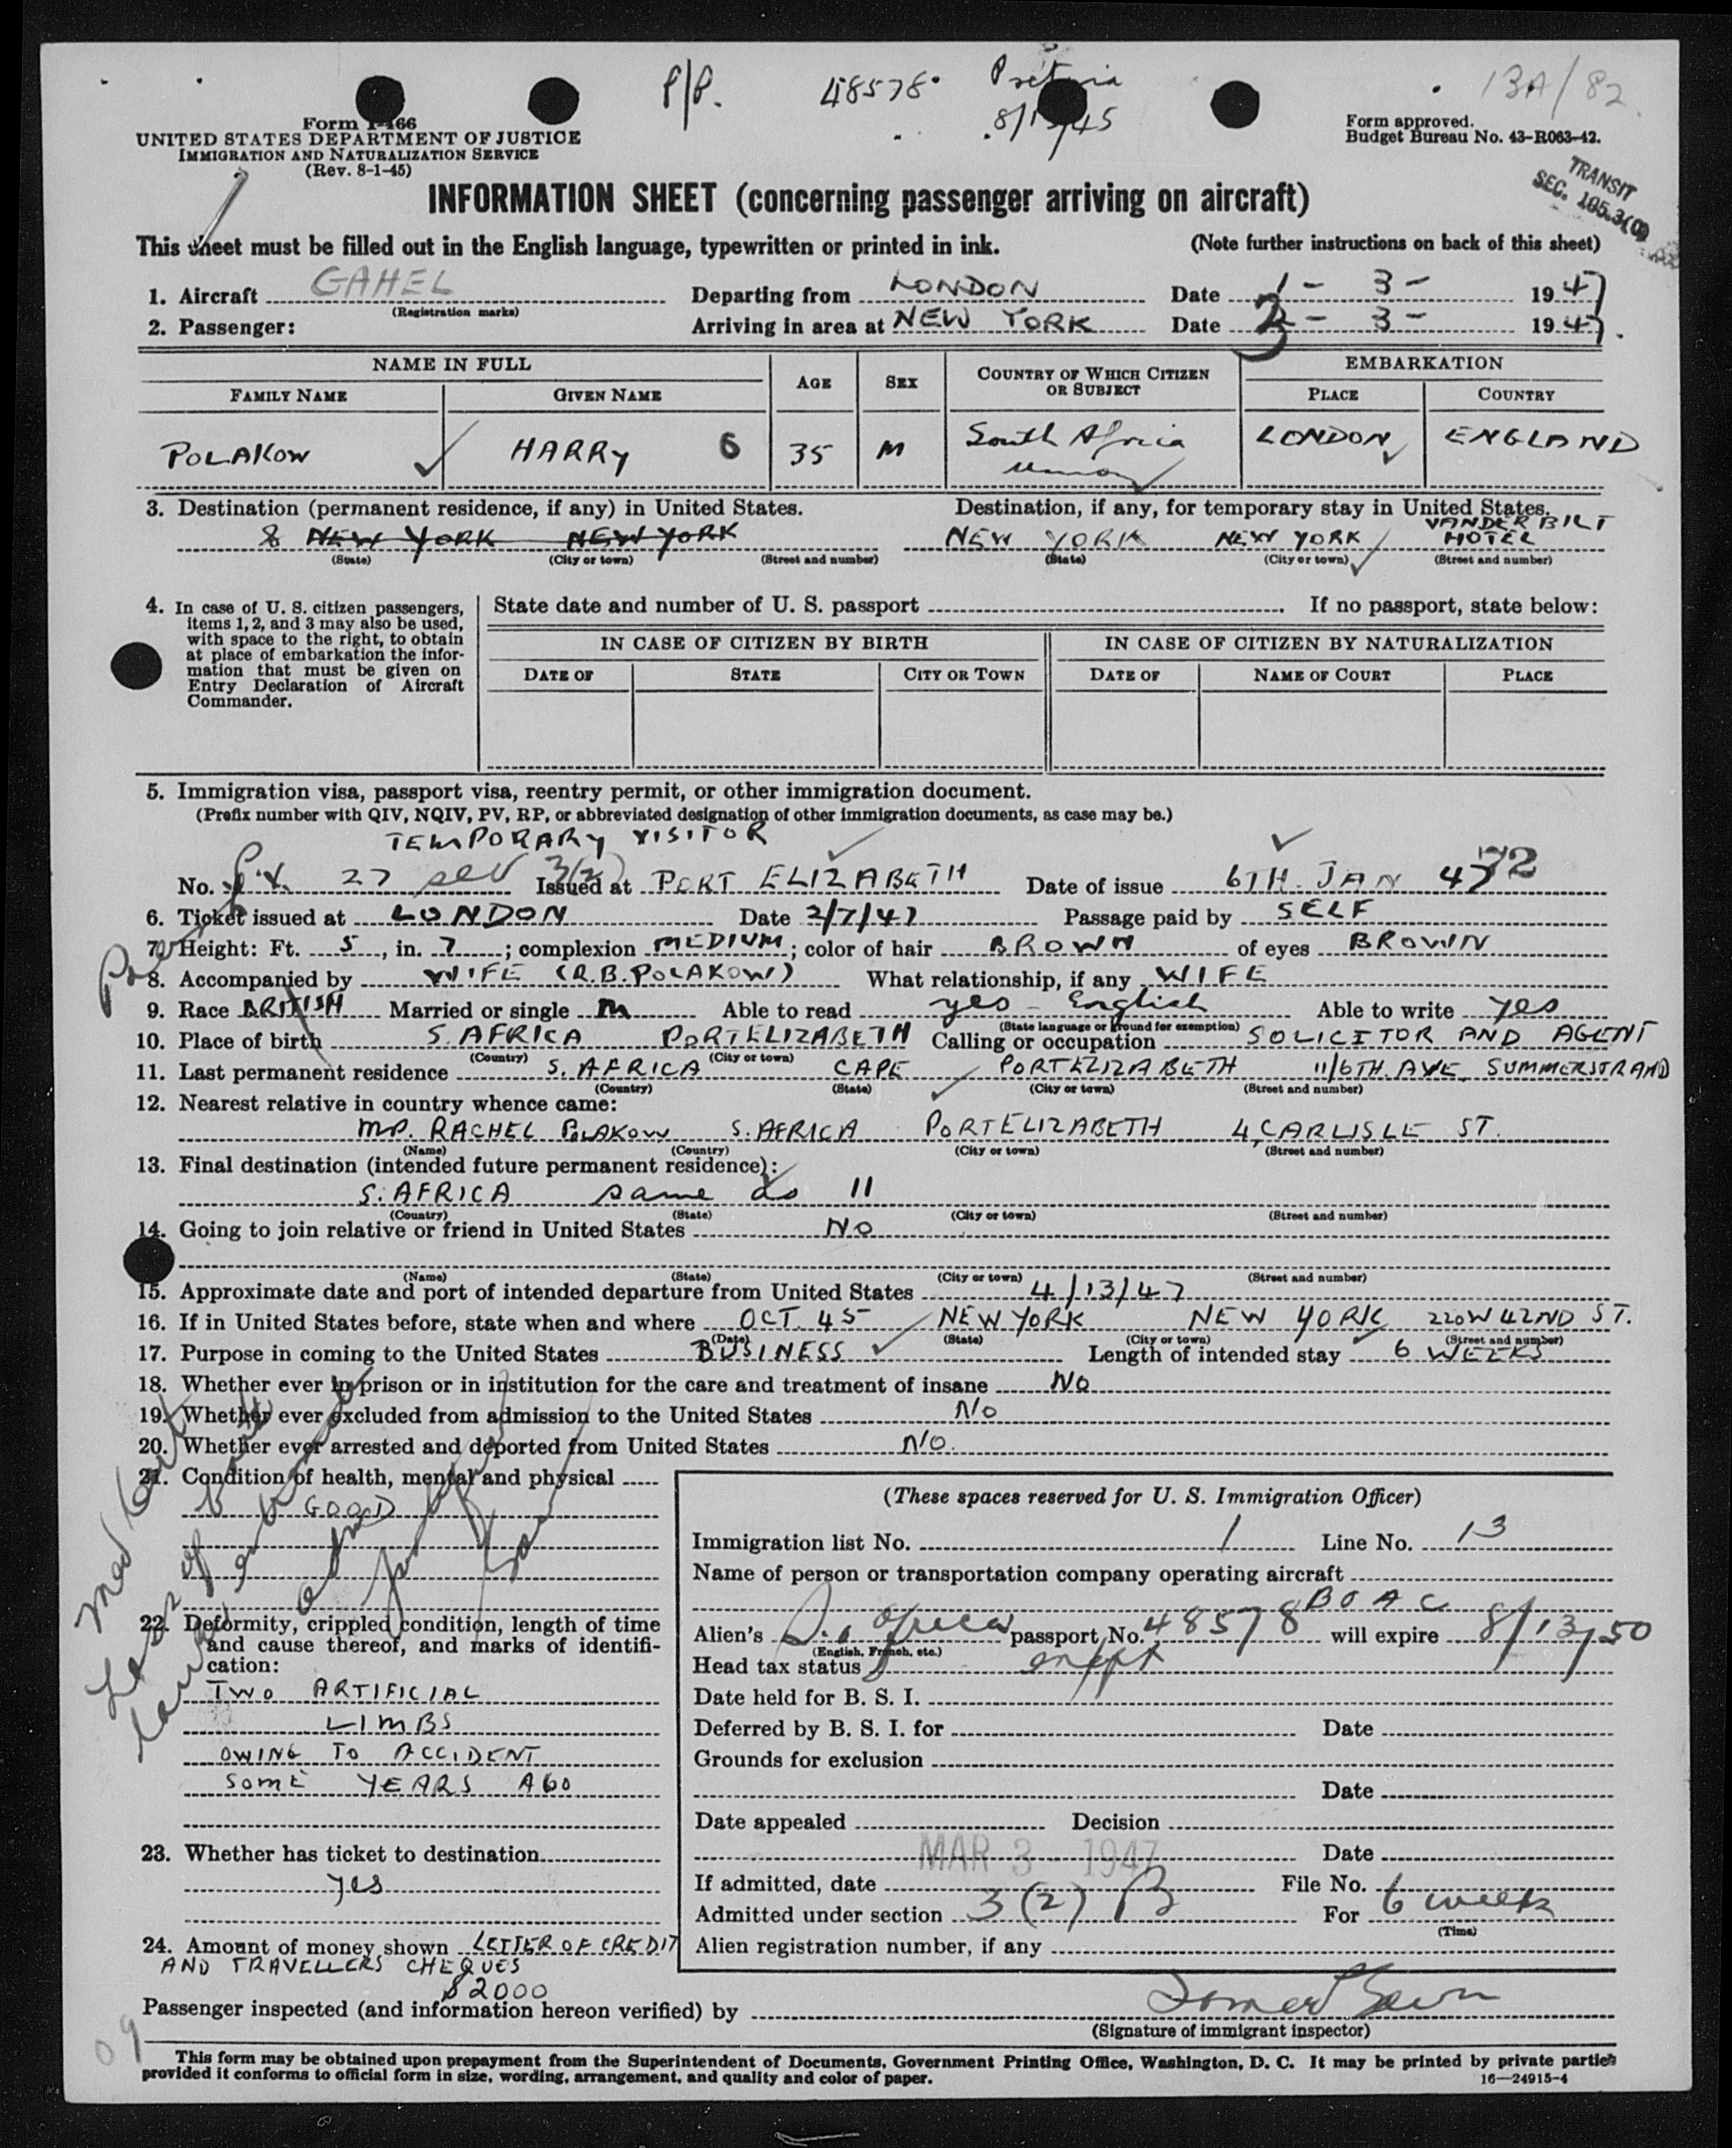 P/P. 48578 Pretoria 13A/82
8/13/45
Form I-466
UNITED STATES DEPARTMENT OF JUSTICE
IMMIGRATION AND NATURALIZATION SERVICE
(Rev. 8-1-45)
Form approved.
Budget Bureau No. 43-R063-42.
TRANSIT
SEC. 195.3(0)
INFORMATION SHEET (concerning passenger arriving on aircraft)
This sheet must be filled out in the English language, typewritten or printed in ink. (Note further instructions on back of this sheet)
1. Aircraft GAHEL Departing from LONDON Date 1-3- 1947
(Registration marks)
2. Passenger: Arriving in area at NEW YORK Date 3-3- 1947.
NAME IN FULL AGE SEX COUNTRY OF WHICH CITIZEN OR SUBJECT EMBARKATION
FAMILY NAME GIVEN NAME PLACE COUNTRY
POLAKOW HARRY 6 35 M South Africa LONDON ENGLAND
Union
3. Destination (permanent residence, if any) in United States. Destination, if any, for temporary stay in United States.
NEW YORK NEW YORK NEW YORK NEW YORK VANDERBILT HOTEL
(State) (City or town) (Street and number) (State) (City or town) (Street and number)
4. In case of U. S. citizen passengers, items 1, 2, and 3 may also be used, with space to the right, to obtain at place of embarkation the information that must be given on Entry Declaration of Aircraft Commander.
State date and number of U. S. passport If no passport, state below:
IN CASE OF CITIZEN BY BIRTH IN CASE OF CITIZEN BY NATURALIZATION
DATE OF STATE CITY OR TOWN DATE OF NAME OF COURT PLACE
5. Immigration visa, passport visa, reentry permit, or other immigration document.
(Prefix number with QIV, NQIV, PV, RP, or abbreviated designation of other immigration documents, as case may be.)
TEMPORARY VISITOR
No. 27 sec 3(2) Issued at PORT ELIZABETH Date of issue 6TH. JAN 47
6. Ticket issued at LONDON Date 2/7/47 Passage paid by SELF
7. Height: Ft. 5, in. 7; complexion MEDIUM; color of hair BROWN of eyes BROWN
8. Accompanied by WIFE (R.B. POLAKOW) What relationship, if any WIFE
9. Race BRITISH Married or single M Able to read yes - English Able to write yes
(State language or ground for exemption)
10. Place of birth S. AFRICA PORT ELIZABETH Calling or occupation SOLICITOR AND AGENT
(Country) (City or town)
11. Last permanent residence S. AFRICA CAPE PORT ELIZABETH 11/6TH. AVE. SUMMERSTRAND
(Country) (State) (City or town) (Street and number)
12. Nearest relative in country whence came:
RACHEL POLAKOW S. AFRICA PORT ELIZABETH 4, CARLISLE ST.
(Name) (Country) (City or town) (Street and number)
13. Final destination (intended future permanent residence):
S. AFRICA same as 11
(Country) (State) (City or town) (Street and number)
14. Going to join relative or friend in United States NO
(Name) (State) (City or town) (Street and number)
15. Approximate date and port of intended departure from United States 4/13/47
16. If in United States before, state when and where OCT. 45 NEW YORK NEW YORK 220 W 42ND ST.
(Date) (State) (City or town) (Street and number)
17. Purpose in coming to the United States BUSINESS Length of intended stay 6 WEEKS
18. Whether ever in prison or in institution for the care and treatment of insane NO
19. Whether ever excluded from admission to the United States NO
20. Whether ever arrested and deported from United States NO.
21. Condition of health, mental and physical
GOOD
Med Cert
Loss of both
22. Deformity, crippled condition, length of time and cause thereof, and marks of identification:
TWO ARTIFICIAL
LIMBS
OWING TO ACCIDENT
SOME YEARS AGO
23. Whether has ticket to destination
yes
24. Amount of money shown LETTER OF CREDIT
AND TRAVELLERS CHEQUES
$2000
(These spaces reserved for U. S. Immigration Officer)
Immigration list No. 1 Line No. 13
Name of person or transportation company operating aircraft
BOAC
Alien's S. African passport No. 48578 will expire 8/13/50
(English, French, etc.)
Head tax status exempt
Date held for B. S. I.
Deferred by B. S. I. for Date
Grounds for exclusion
Date
Date appealed Decision
MAR 3 - 1947 Date
If admitted, date File No.
Admitted under section 3(2) B For 6 weeks
(Time)
Alien registration number, if any
Passenger inspected (and information hereon verified) by
(Signature of immigrant inspector)
09
This form may be obtained upon prepayment from the Superintendent of Documents, Government Printing Office, Washington, D. C. It may be printed by private parties
provided it conforms to official form in size, wording, arrangement, and quality and color of paper. 16—24915-4